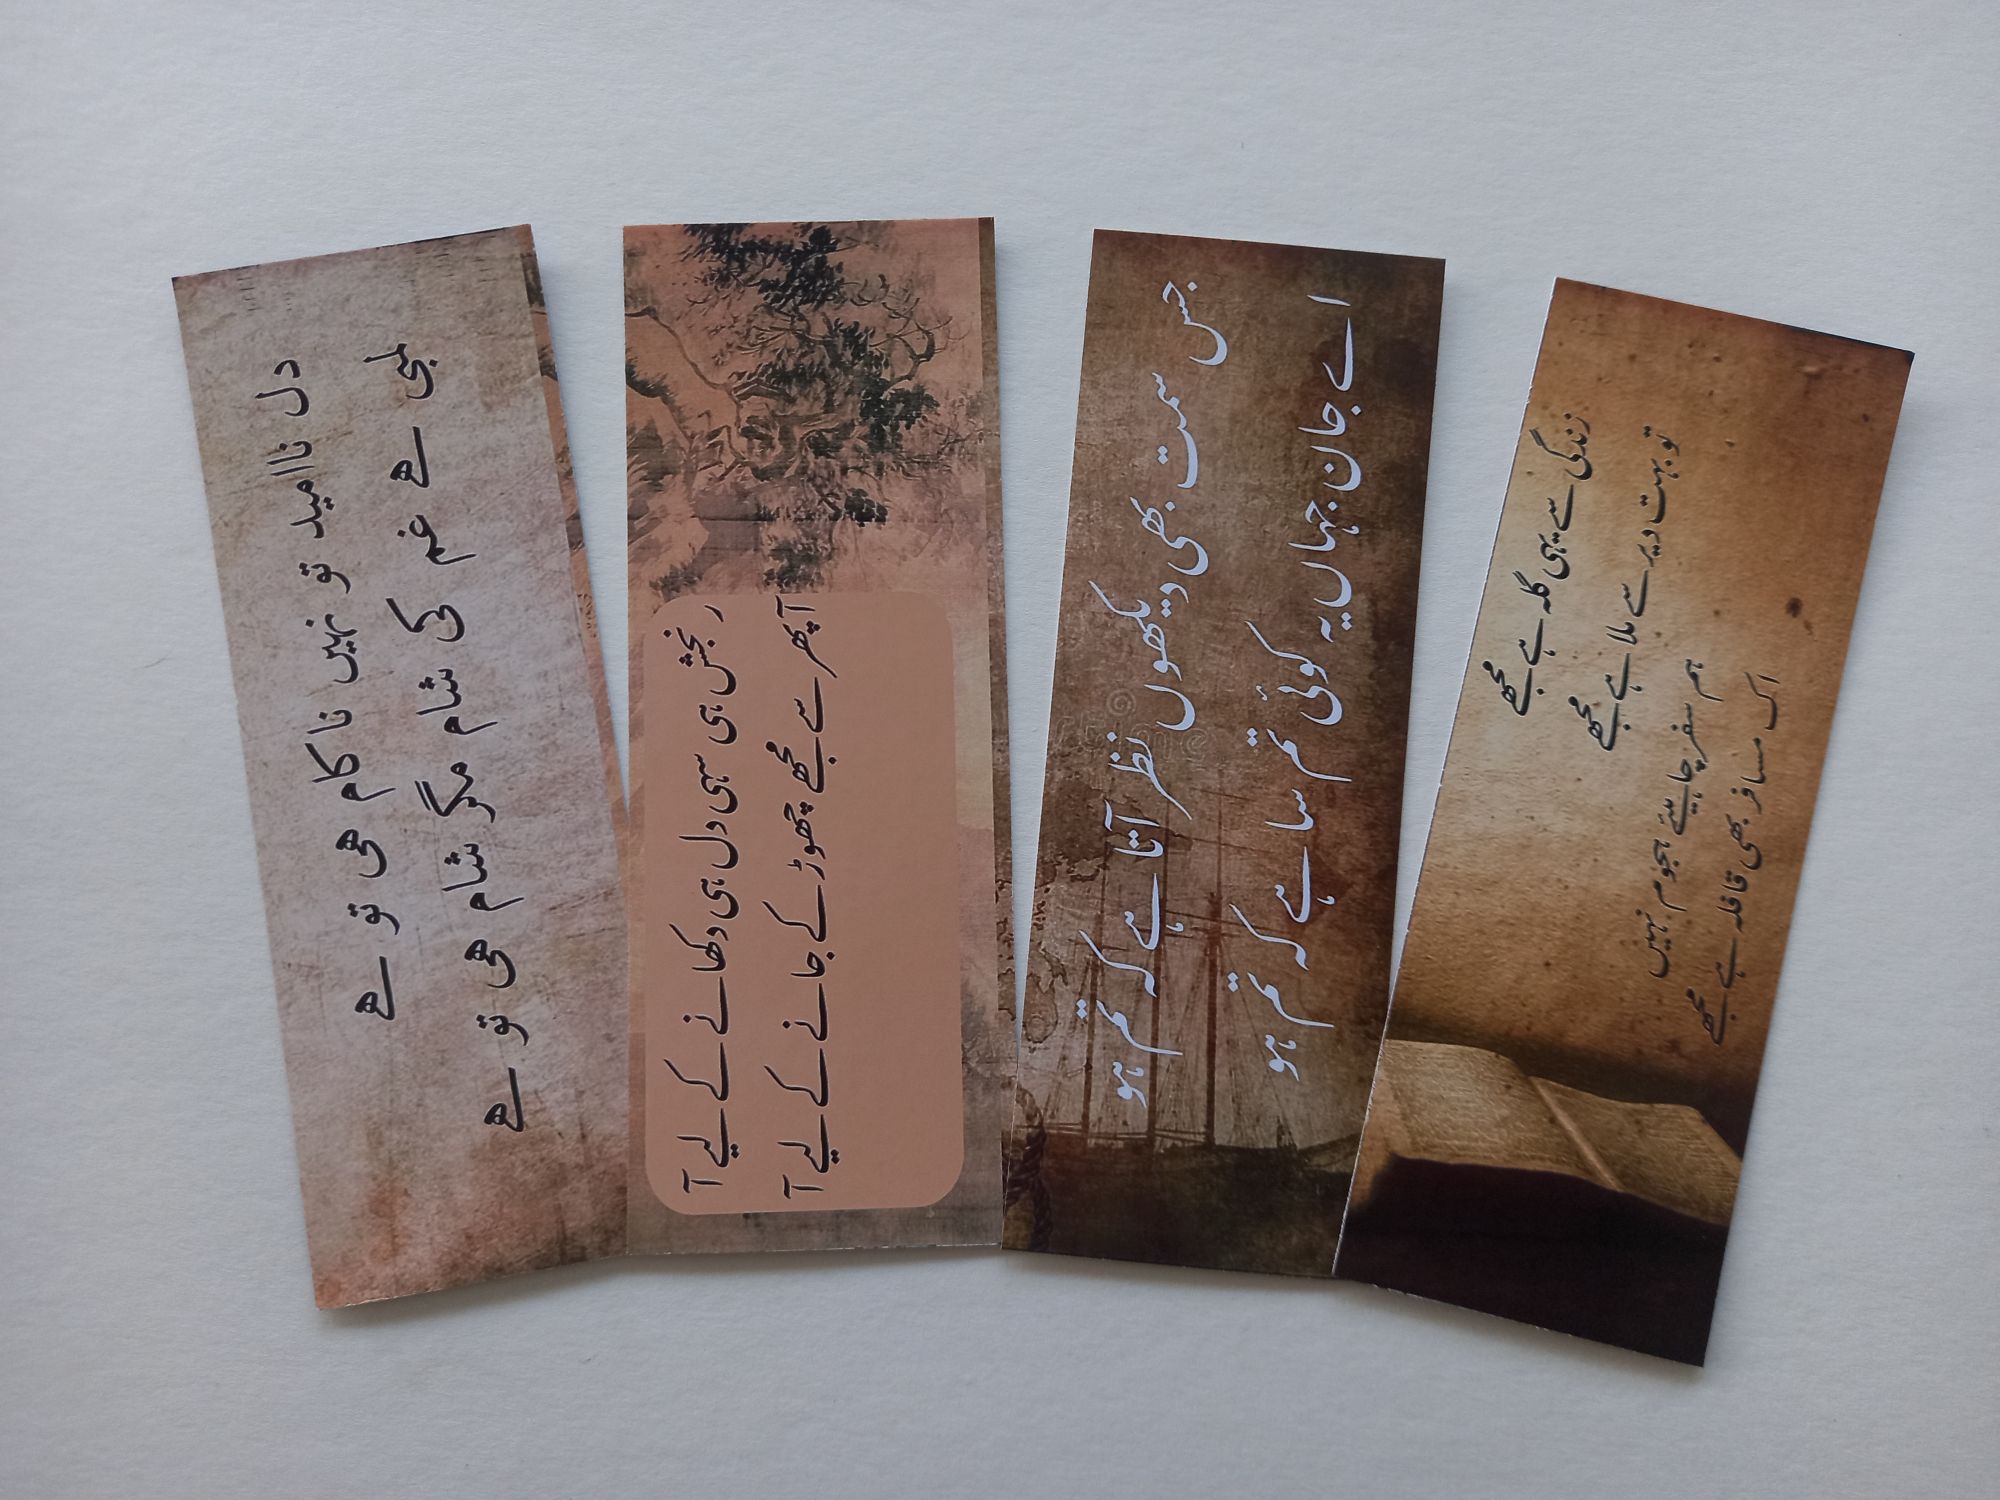 دل ناامید تو نہیں ناکام ھی تو ھے
لمبی ھے غم کی شام مگر شام ھی تو ھے
رنجش ہی سہی دل ہی دکھانے کے لیے آ
آ پھر سے مجھے چھوڑ کے جانے کے لیے آ
جس سمت بھی دیکھوں نظر آتا ہے کہ تم ہو
اے جان جہاں یہ کوئی تم سا ہے کہ تم ہو
زندگی سے یہی گلہ ہے مجھے
تو بہت دیر سے ملا ہے مجھے
ہم سفر چاہیئے ہجوم نہیں
اک مسافر بھی قافلہ ہے مجھے